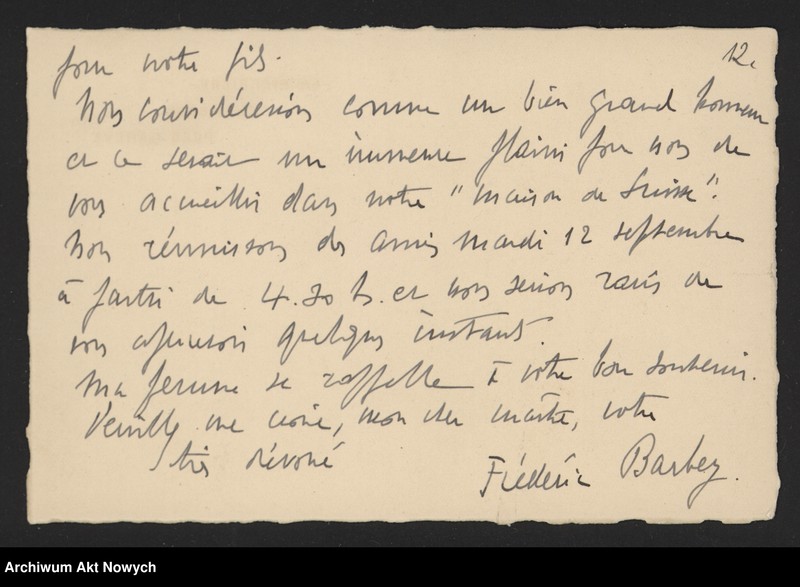 12.
pour notre fils.
Nous considérerions comme un bien grand honneur
et ce serait un immense plaisir pour nous de
vous accueillir dans notre "Maison de Suisse".
Nous réunissons des amis mardi 12 septembre
à partir de 4.30 h. et nous serions ravis de
vous apercevoir quelques instants.
Ma femme se rappelle à votre bon souvenir.
Veuillez me croire, mon cher maître, votre
très dévoué
Frédéric Barbey.
Archiwum Akt Nowych